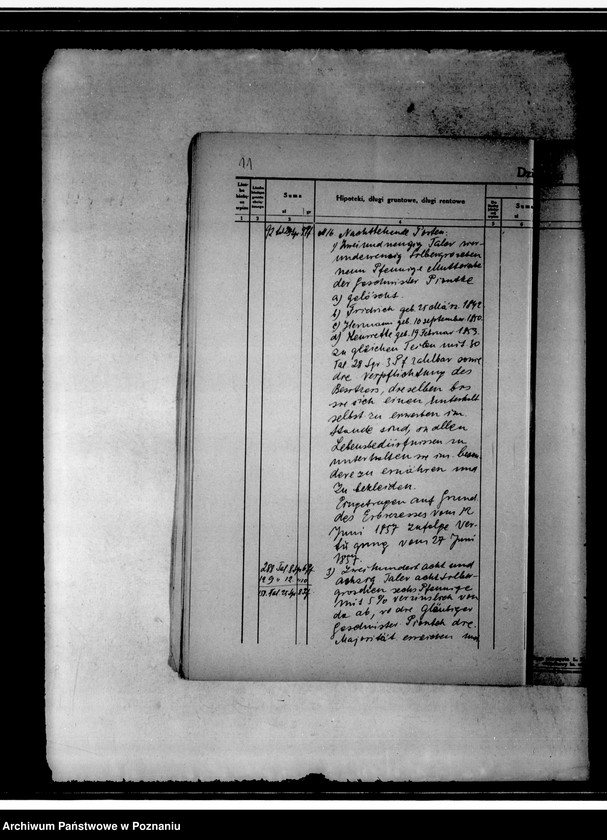 11
Dzi
Suma
zł
gr
Hipoteki, długi gruntowe, długi rentowe
Suma
zł
1
2
3
4
5
6
Nachstehende Posten:
1) Zweiundneunzig Taler
undzwanzig Silbergroschen
neun Pfennige Muttererbe
der Geschwister
a) gelöscht.
b) Friedrich geb. 25 März 1842
c) Hermann geb. 10 September 1850.
d) Henriette geb. 19 Februar 1853.
zu gleichen Teilen mit 30
Tal 28 Sgr 3 Pf zahlbar sowie
die Verpflichtung des
Besitzers, dieselben bis
sie sich einen Unterhalt
selbst zu erwerben im
Stande sind, in allen
Lebensbedürfnissen zu
unterhalten sie ins beson
dere zu ernähren und
zu bekleiden.
Eingetragen auf Grund
des Erbrezesses vom 12
Juni 1857 zufolge Ver-
fügung vom 27 Juni
1857.
3) Zweihundert acht und
achtzig Taler acht Silber-
groschen sechs Pfennige
mit 5% verzinslich von
da ab, wo die Gläubiger
Geschwister die
Majorität erreichen und
Archiwum Państwowe w Poznaniu